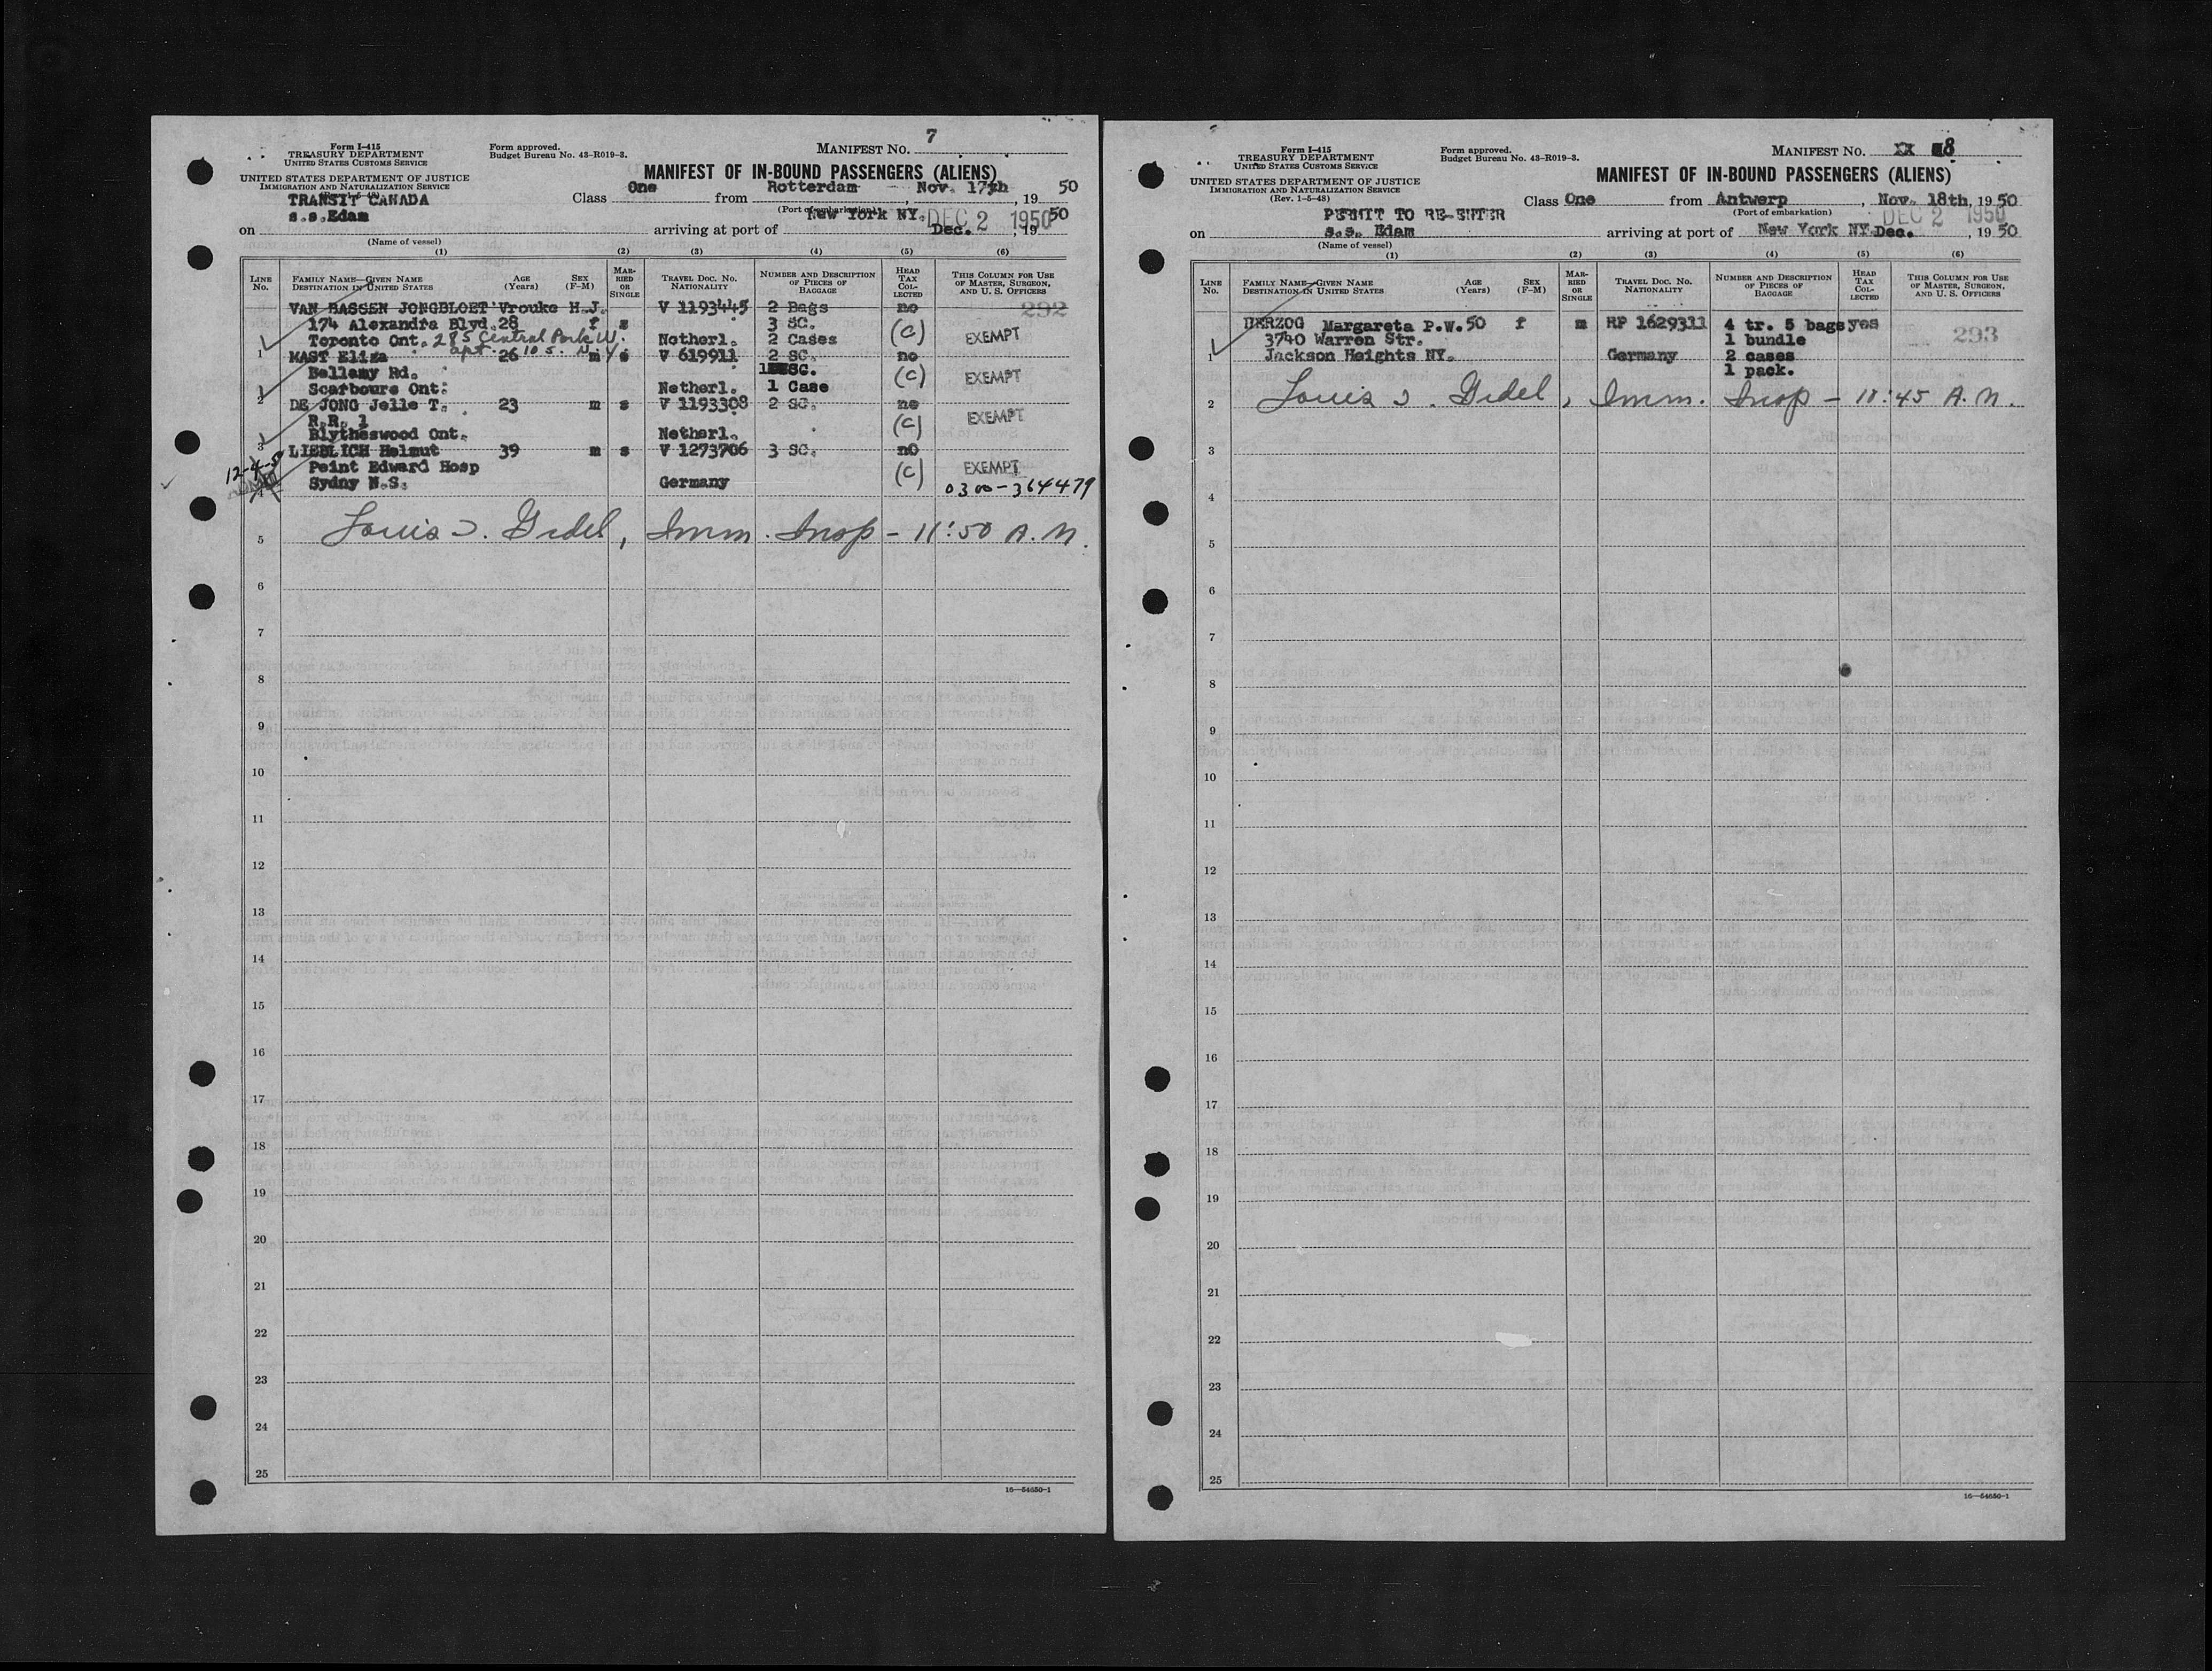 7
Form I-415
TREASURY DEPARTMENT
UNITED STATES CUSTOMS SERVICE
Form approved.
Budget Bureau No. 43-R019-3.
MANIFEST No.
UNITED STATES DEPARTMENT OF JUSTICE
IMMIGRATION AND NATURALIZATION SERVICE
MANIFEST OF IN-BOUND PASSENGERS (ALIENS)
TRANSIT CANADA
Class One from Rotterdam, Nov. 17th, 1950
(Port of embarkation)
on s.s.Edam arriving at port of New York NY. Dec. DEC 2 1950, 1950
(Name of vessel)
(1) (2) (3) (4) (5) (6)
LINE No. FAMILY NAME—GIVEN NAME DESTINATION IN UNITED STATES AGE (Years) SEX (F-M) MARRIED OR SINGLE TRAVEL DOC. No. NATIONALITY NUMBER AND DESCRIPTION OF PIECES OF BAGGAGE HEAD TAX COLLECTED THIS COLUMN FOR USE OF MASTER, SURGEON, AND U. S. OFFICERS
VAN BASSEN JONGBLOET Vrouke H.J. V 1193445 2 Bags no 292
174 Alexandra Blvd. 28 f 3 SC. (C) EXEMPT
1 Toronto Ont. 285 Central Park W. Netherl. 2 Cases
apt. 10 S. N.Y.
MAST Eliza 26 m s V 619911 2 SC. no
Bellamy Rd. SC. (C) EXEMPT
2 Scarboure Ont. Netherl. 1 Case
DE JONG Jelle T. 23 m s V 1193308 2 SC. no
R.R. 1 (C) EXEMPT
3 Blytheswood Ont. Netherl.
LIEBLICH Helmut 39 m s V 1273706 3 SC. no
Point Edward Hosp (C) EXEMPT
4 Sydny N.S. Germany 0300-364479
5 Louis J. Gidel, Imm. Insp - 11:50 A.M.
6
7
8
9
10
11
12
13
14
15
16
17
18
19
20
21
22
23
24
25
16—54650-1
Form I-415
TREASURY DEPARTMENT
UNITED STATES CUSTOMS SERVICE
Form approved.
Budget Bureau No. 43-R019-3.
MANIFEST No. XX 8
UNITED STATES DEPARTMENT OF JUSTICE
IMMIGRATION AND NATURALIZATION SERVICE
(Rev. 1-5-48)
MANIFEST OF IN-BOUND PASSENGERS (ALIENS)
PERMIT TO RE-ENTER
Class One from Antwerp, Nov. 18th, 1950
(Port of embarkation)
on s.s. Edam arriving at port of New York NY. Dec. DEC 2 1950, 1950
(Name of vessel)
(1) (2) (3) (4) (5) (6)
LINE No. FAMILY NAME—GIVEN NAME DESTINATION IN UNITED STATES AGE (Years) SEX (F-M) MARRIED OR SINGLE TRAVEL DOC. No. NATIONALITY NUMBER AND DESCRIPTION OF PIECES OF BAGGAGE HEAD TAX COLLECTED THIS COLUMN FOR USE OF MASTER, SURGEON, AND U. S. OFFICERS
HERZOG Margareta P.W. 50 f m RP 1629311 4 tr. 5 bags yes
3740 Warren Str. 1 bundle 293
1 Jackson Heights NY. Germany 2 cases
1 pack.
2 Louis J. Gidel, Imm. Insp - 11:45 A.M.
3
4
5
6
7
8
9
10
11
12
13
14
15
16
17
18
19
20
21
22
23
24
25
16—54650-1